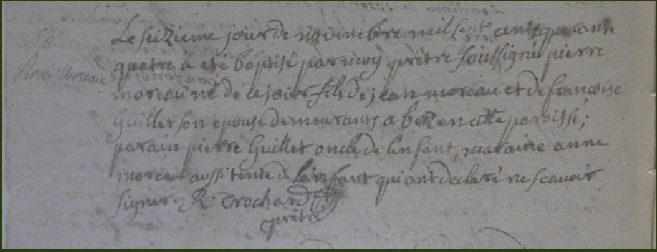 Le seizieme jour de novembre mil sept cent quarante
quatre a eté baptisé par moy prêtre soussigné pierre
Pierre Moreau
moreau né de ce jour fils de jean moreau et de francoise
Guillet son epouse demeurants a bez en cette paroisse;
parain pierre Guillet oncle de lenfant, maraine anne
moreau aussi tente de lenfant qui ont declaré ne scavoir
signer. R. Trochard
prêtre